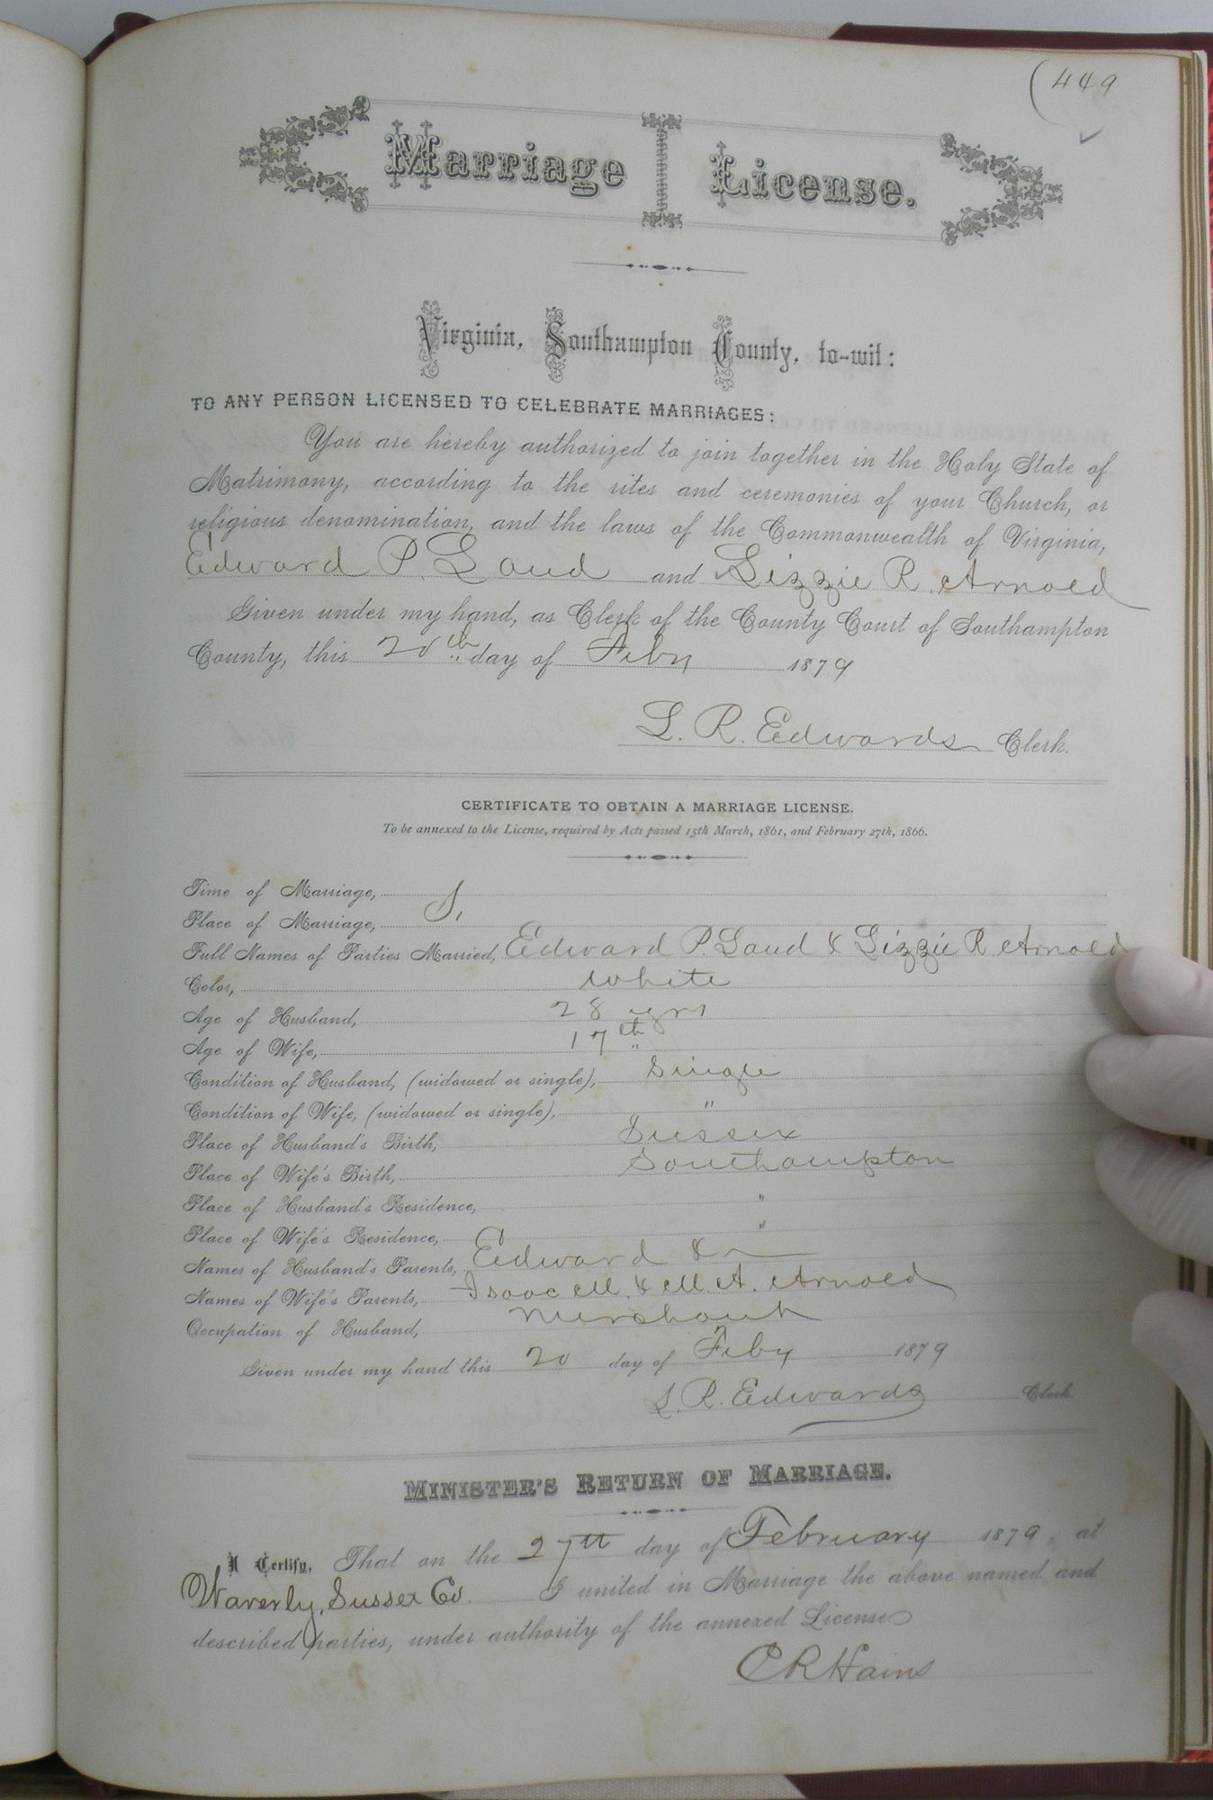 (449
Marriage License.
Virginia, Southampton County, to-wit:
TO ANY PERSON LICENSED TO CELEBRATE MARRIAGES:
You are hereby authorized to join together in the Holy State of
Matrimony, according to the rites and ceremonies of your Church, or
religious denomination, and the laws of the Commonwealth of Virginia,
Edward P. Laud and Lizzie R. Arnold
Given under my hand, as Clerk of the County Court of Southampton
County, this 20th day of Feby 1879
L. R. Edwards Clerk.
CERTIFICATE TO OBTAIN A MARRIAGE LICENSE.
To be annexed to the License, required by Acts passed 15th March, 1861, and February 27th, 1866.
Time of Marriage,
Place of Marriage, S,
Full Names of Parties Married, Edward P. Laud & Lizzie R Arnold
Color, White
Age of Husband, 28 yrs
Age of Wife, 17th "
Condition of Husband, (widowed or single), Single
Condition of Wife, (widowed or single), "
Place of Husband's Birth, Sussex
Place of Wife's Birth, Southampton
Place of Husband's Residence, "
Place of Wife's Residence, "
Names of Husband's Parents, Edward & —
Names of Wife's Parents, Isaac M. & M. A. Arnold
Occupation of Husband, Merchant
Given under my hand this 20 day of Feby 1879
L. R. Edwards Clerk.
MINISTER'S RETURN OF MARRIAGE.
I Certify, That on the 27th day of February 1879, at
Waverly, Sussex Co. I united in Marriage the above named and
described parties, under authority of the annexed License
C R Hains